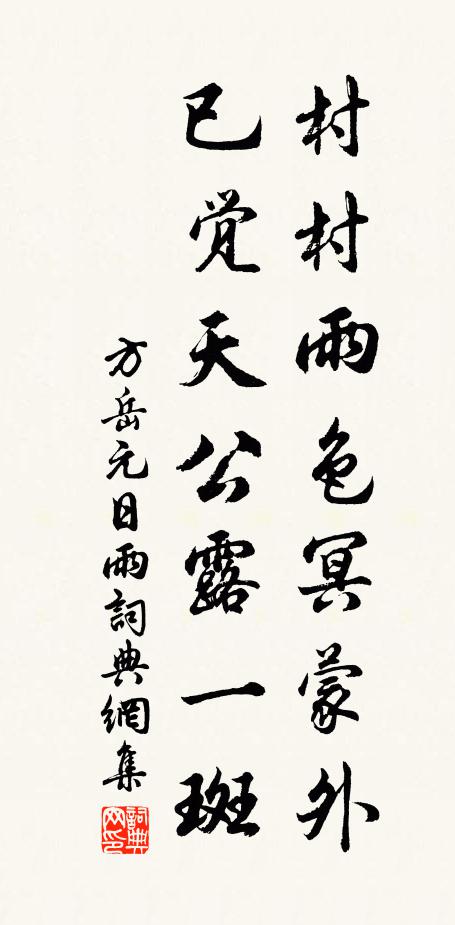 村村雨色冥蒙外
已觉天公露一斑
方岳元日雨詞典網集
詞典网印